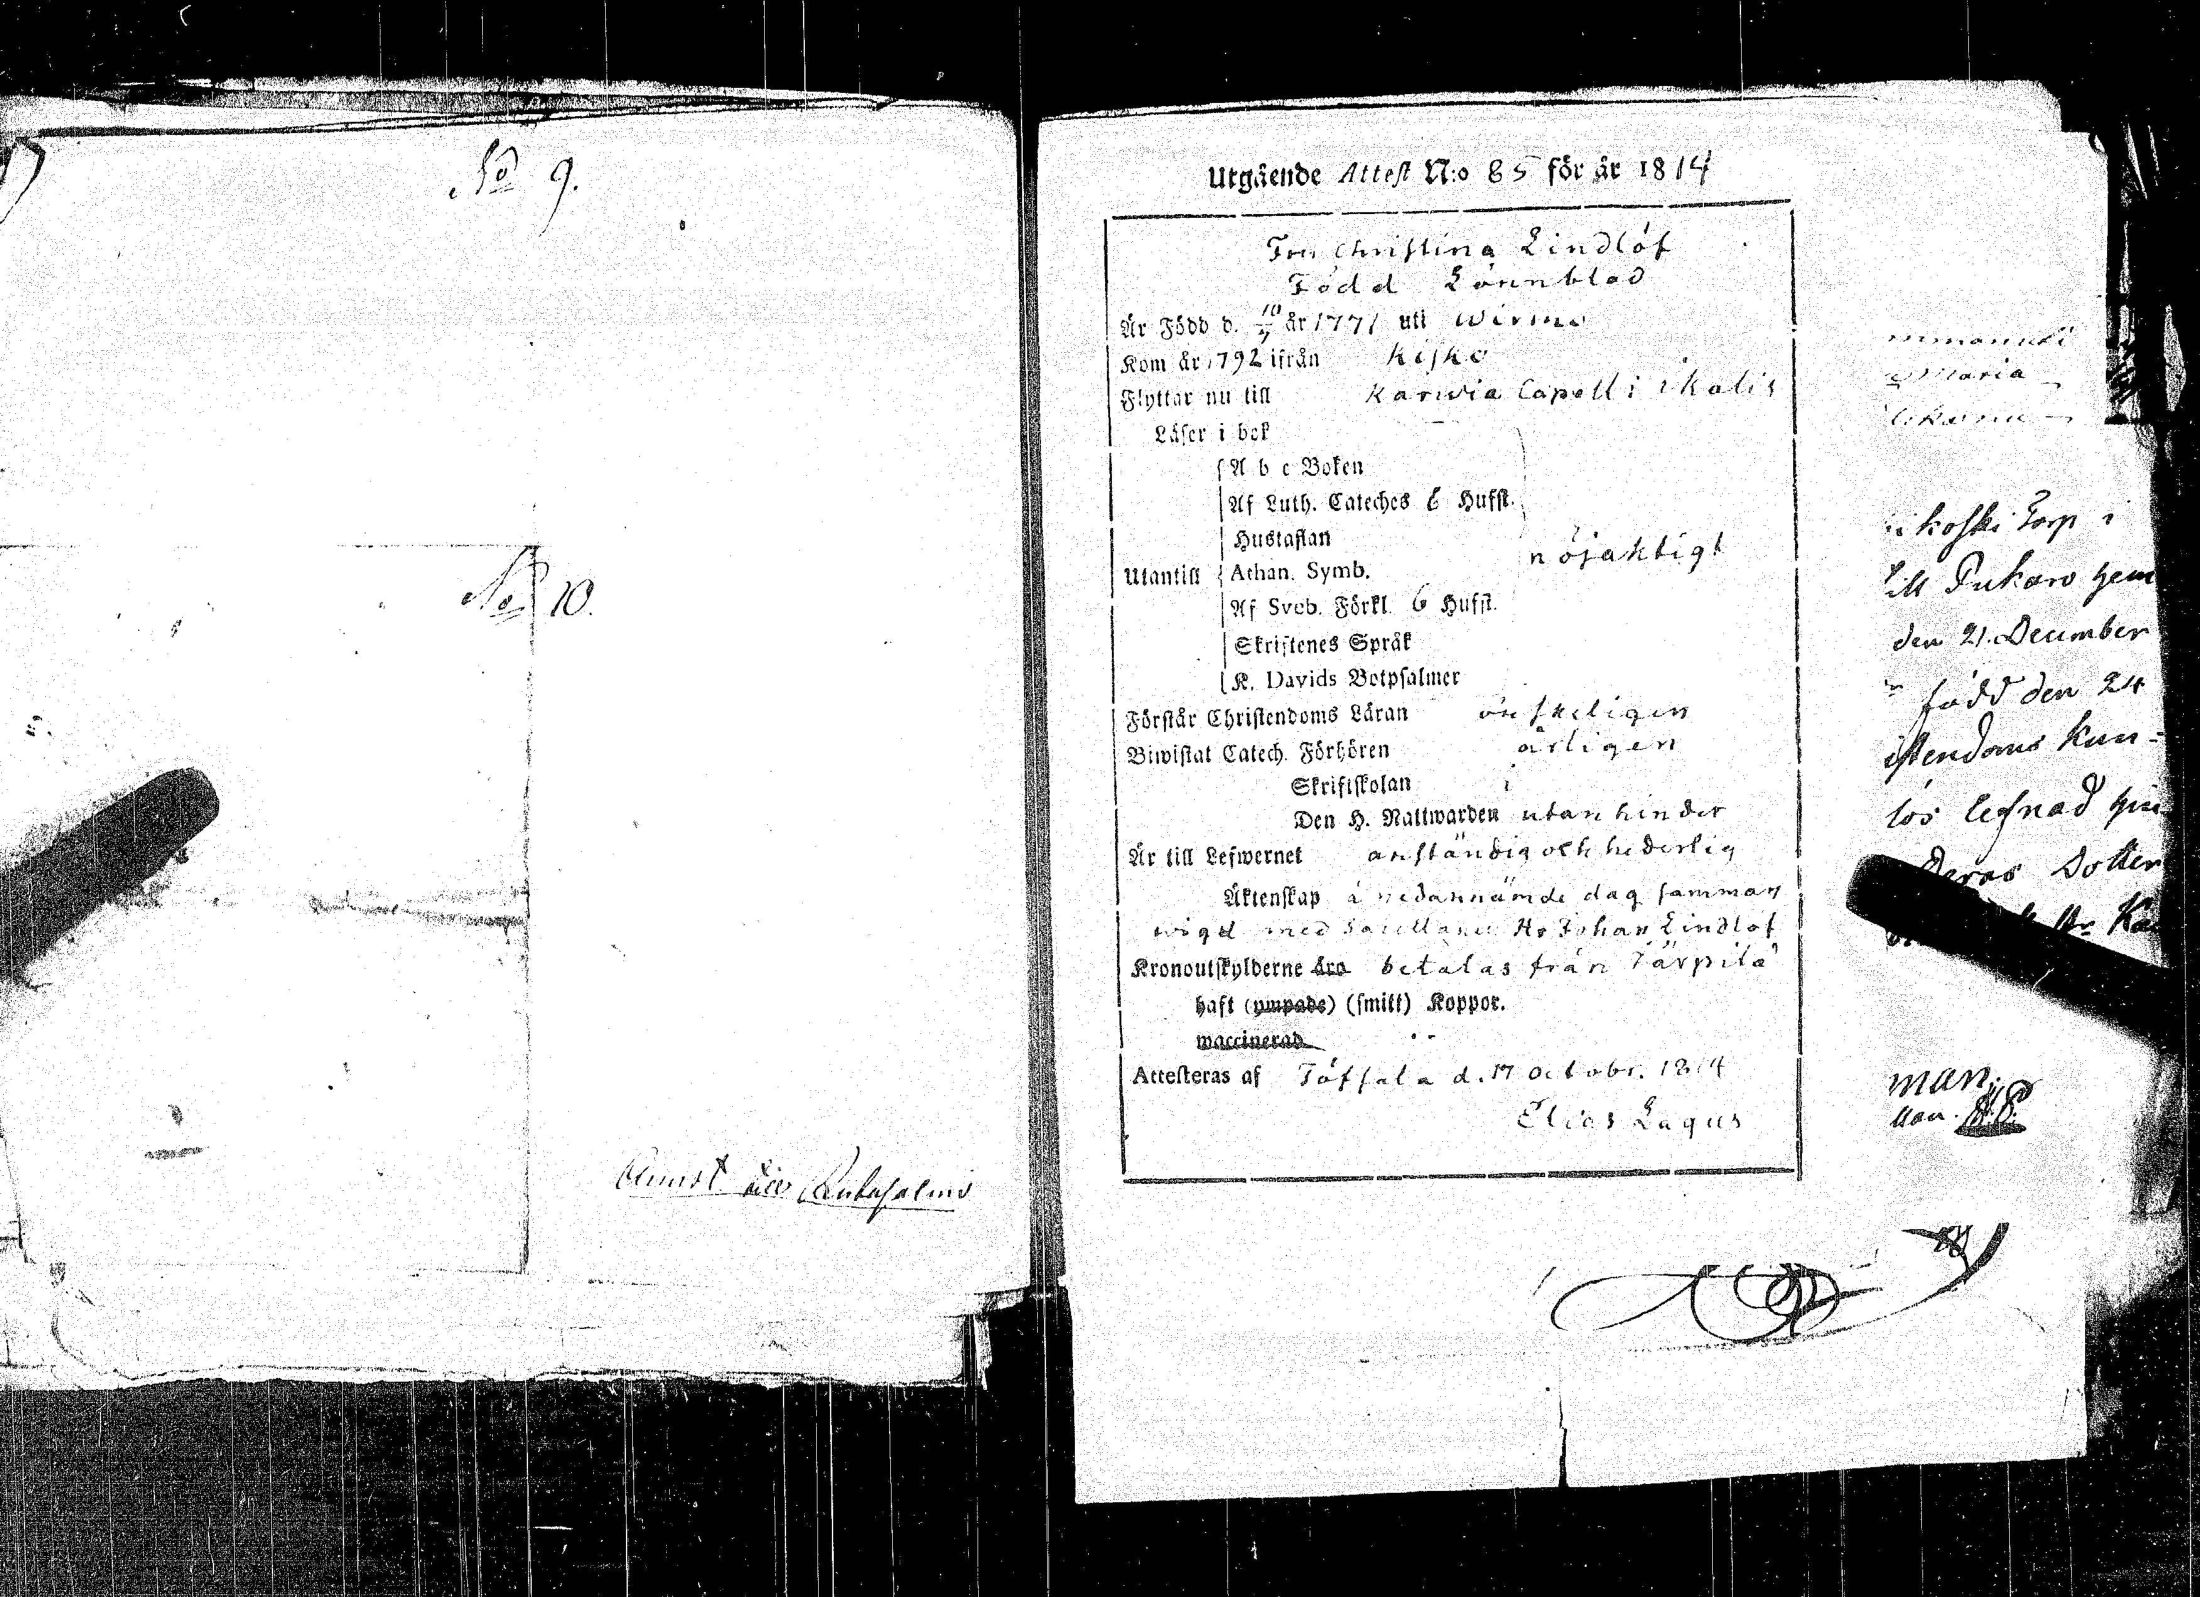 No 9.
No 10.
Utgående Attest N:o 85 för år 1814
Fru Christina Lindlöf
Född Lönnblad
Är Född d. 10/7 år 1771 uti Wirmo
Kom år 1792 ifrån Kisko
Flyttar nu till Karwia Capell i Ikalis
Läser i bok
A b c Boken
Af Luth. Cateches 6 Hufst.
Hustaflan
Utantill Athan. Symb. nöjaktigt
Af Sveb. Förkl. 6 Hufst.
Skriftenes Språk
K. Davids Botpsalmer
Förstår Christendoms Läran önskeligen
Biwistat Catech. Förhören årligen
Skriftskolan
Den H. Nattwarden utan hinder
Är till Lefwernet anständig och hederlig
Äktenskap å nedannämde dag samman
wigd med Hr Johan Lindlöf
Kronoutskylderne äro betalas från Tärpilä
haft (ympade) (smitt) Koppor.
waccinerad
Attesteras af Töfsala d. 17 Octobr. 1814
Elias Lagus
Maria
koski Torp i
till Pukaro hem
den 21. December
född den 24
istendoms kun=
lös lefnad
deras Dotter
man.